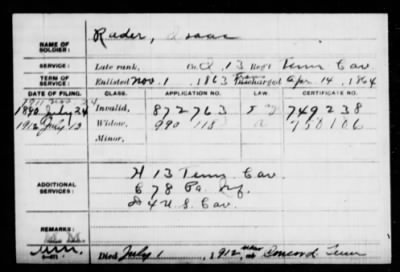 NAME OF SOLDIER: Rader, Isaac
SERVICE: Late rank, Co. D, 13 Reg't Tenn Cav.
TERM OF SERVICE: Enlisted Nov. 1, 1863 Trans Discharged Apr 14, 1864
DATE OF FILING. CLASS. APPLICATION NO. LAW. CERTIFICATE NO.
1890 July 24 Invalid, 872763 749238
1912 July 13 Widow, 990 118 a 750106
Minor,
ADDITIONAL SERVICES: H 13 Tenn. Cav.
C 78 Pa. Inf.
D 4 U.S. Cav.
REMARKS:
Died July 1, 1912, at Concord Tenn